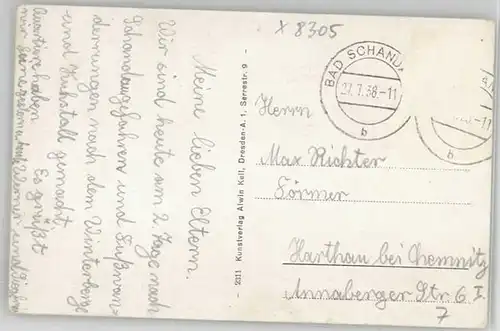 x 8305
BAD SCHANDAU
27.7.38-11
b
Meine lieben Eltern
Wir sind heute um 2 Tage nach
Schandau gefahren und Fußwan=
derungen nach dem Winterberge
und Kuhstall gemacht
Quartier haben
Es grüßt
Werner und
- 2011 Kunstverlag Alwin Keil, Dresden-A. 1, Serrestr. 9 -
Herrn
Max Richter
Förmer
Harthau bei Chemnitz
Annaberger Str 6 I.
7